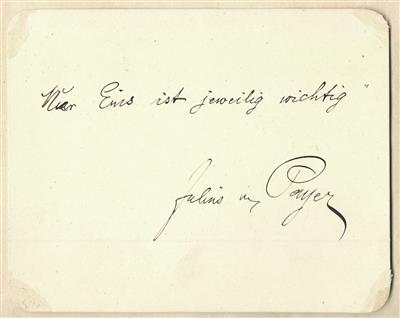 Nur Eins ist jeweilig wichtig"
Julius v Payer